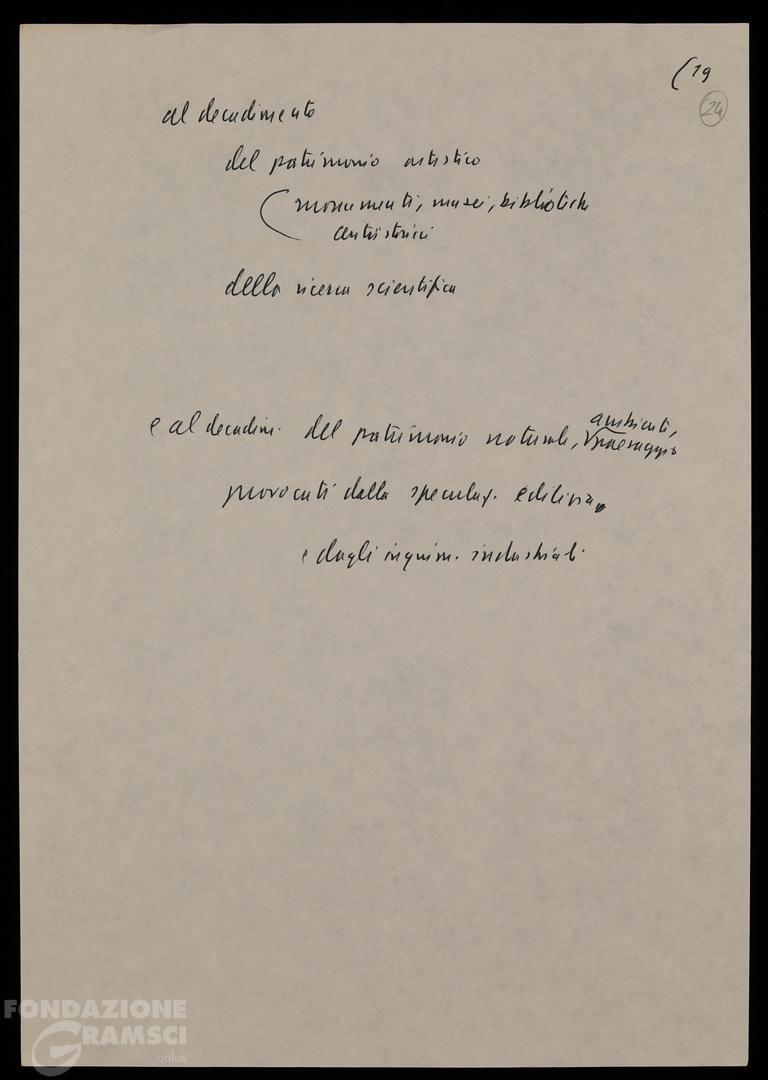 (19
24
al decadimento
del patrimonio artistico
(monumenti, musei, biblioteche
centri storici
della ricerca scientifica
e al decadim. del patrimonio naturale, ambienti,
paesaggio
provocati dalla speculaz. edilizia
e dagli inquin. industriali
FONDAZIONE
GRAMSCI
onlus